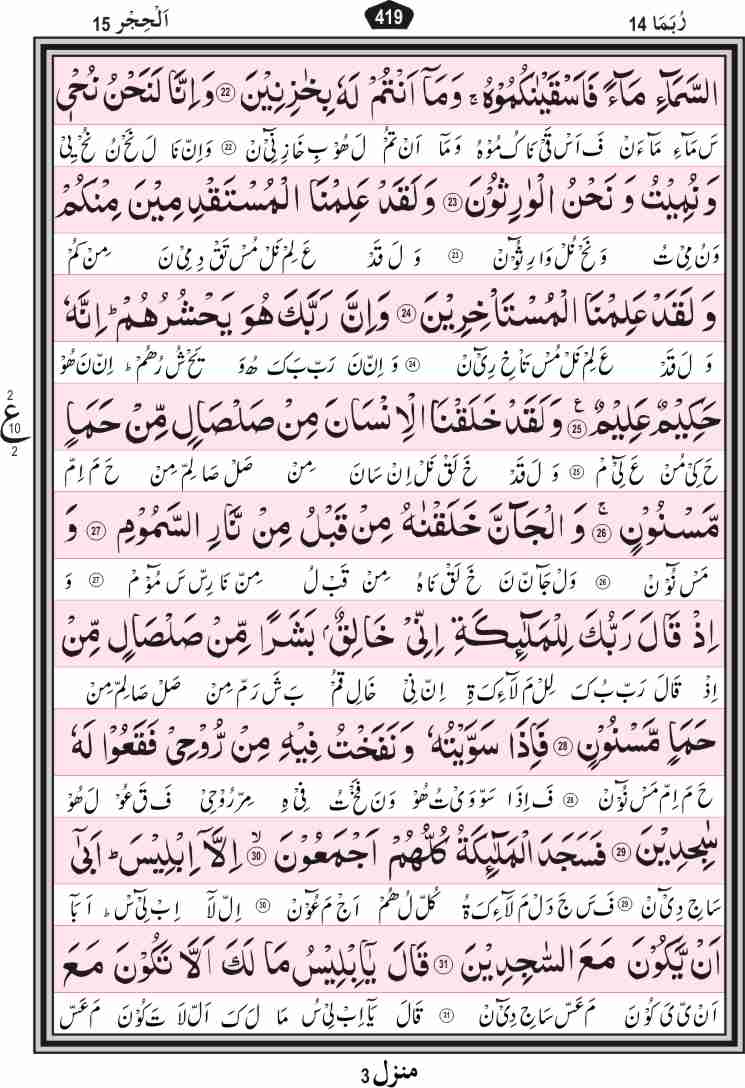 رُبَمَا 14 419 اَلْحِجْر 15
السَّمَآءِ مَآءً فَاَسْقَيْنٰكُمُوْهُۚ وَمَاۤ اَنْتُمْ لَهٗ بِخٰزِنِيْنَ ﴿22﴾ وَاِنَّا لَنَحْنُ نُحْيٖ
سَ مَآءِ مَآءَنْ فَ اَسْ قَىْ نَاكُ مُوْهُ وَمَا اَنْ تُمْ لَ هُوْ بِ خَازِ نِىْٓ نْ 22 وَاِنْ نَا لَ نَحْ نُ نُحْ يِىْ
وَنُمِيْتُ وَنَحْنُ الْوٰرِثُوْنَ ﴿23﴾ وَلَقَدْ عَلِمْنَا الْمُسْتَقْدِمِيْنَ مِنْكُمْ
وَنُ مِىْ تُ وَنَحْ نُلْ وَارِثُوْٓنْ 23 وَ لَ قَدْ عَ لِمْ نَلْ مُسْ تَقْ دِمِىْ نَ مِنْ كُمْ
وَلَقَدْ عَلِمْنَا الْمُسْتَاْخِرِيْنَ ﴿24﴾ وَاِنَّ رَبَّكَ هُوَ يَحْشُرُهُمْؕ اِنَّهٗ
وَ لَ قَدْ عَ لِمْ نَلْ مُسْ تَاْخِ رِىْٓ نْ 24 وَ اِنْ نَ رَبْ بَ كَ هُ وَ يَحْ شُ رُهُمْؕ اِنْ نَ هُوْ
حَكِيْمٌ عَلِيْمٌ ﴿25﴾ع وَلَقَدْ خَلَقْنَا الْاِنْسَانَ مِنْ صَلْصَالٍ مِّنْ حَمَاٍ
حَ كِىْ مُنْ عَ لِىْٓ مْ 25 وَ لَ قَدْ خَ لَقْ نَلْ اِنْ سَانَ مِنْ صَلْ صَا لِمْ مِنْ حَ مَ اِمْ
2 ع 10 2
مَّسْنُوْنٍ ﴿26﴾ج وَالْجَآنَّ خَلَقْنٰهُ مِنْ قَبْلُ مِنْ نَّارِ السَّمُوْمِ ﴿27﴾ وَ
مَسْ نُوْٓنْ 26 وَلْ جَآنْ نَ خَ لَقْ نَاهُ مِنْ قَبْ لُ مِنْ نَا رِسْ سَ مُوْٓمْ 27 وَ
اِذْ قَالَ رَبُّكَ لِلْمَلٰٓئِكَةِ اِنِّيْ خَالِقٌۢ بَشَرًا مِّنْ صَلْصَالٍ مِّنْ
اِذْ قَالَ رَبْ بُ كَ لِلْ مَ لَآءِ كَ ةِ اِنْ نِىْ خَالِ قُمْ بَ شَ رَمْ مِنْ صَلْ صَا لِمْ مِنْ
حَمَاٍ مَّسْنُوْنٍ ﴿28﴾ فَاِذَا سَوَّيْتُهٗ وَنَفَخْتُ فِيْهِ مِنْ رُّوْحِيْ فَقَعُوْا لَهٗ
حَ مَ اِمْ مَسْ نُوْٓنْ 28 فَ اِذَا سَوْ وَىْ تُ هُوْ وَنَ فَخْ تُ فِىْ هِ مِرْ رُوْحِىْ فَ قَ عُوْ لَ هُوْ
سٰجِدِيْنَ ﴿29﴾ فَسَجَدَ الْمَلٰٓئِكَةُ كُلُّهُمْ اَجْمَعُوْنَ ﴿30﴾ۙ اِلَّاۤ اِبْلِيْسَؕ اَبٰۤى
سَاجِ دِىْٓ نْ 29 فَ سَ جَ دَلْ مَ لَآءِ كَ ةُ كُلْ لُ هُمْ اَجْ مَ عُوْٓنْ 30 اِلْ لَآ اِبْ لِىْٓ سْؕ اَ بَآ
اَنْ يَّكُوْنَ مَعَ السّٰجِدِيْنَ ﴿31﴾ قَالَ يٰۤاِبْلِيْسُ مَا لَكَ اَلَّا تَكُوْنَ مَعَ
اَنْ ىْ يَ كُوْنَ مَ عَسْ سَاجِ دِىْٓ نْ 31 قَالَ يَآ اِبْ لِىْ سُ مَا لَ كَ اَلْ لَا تَ كُوْنَ مَ عَسْ
منزل 3